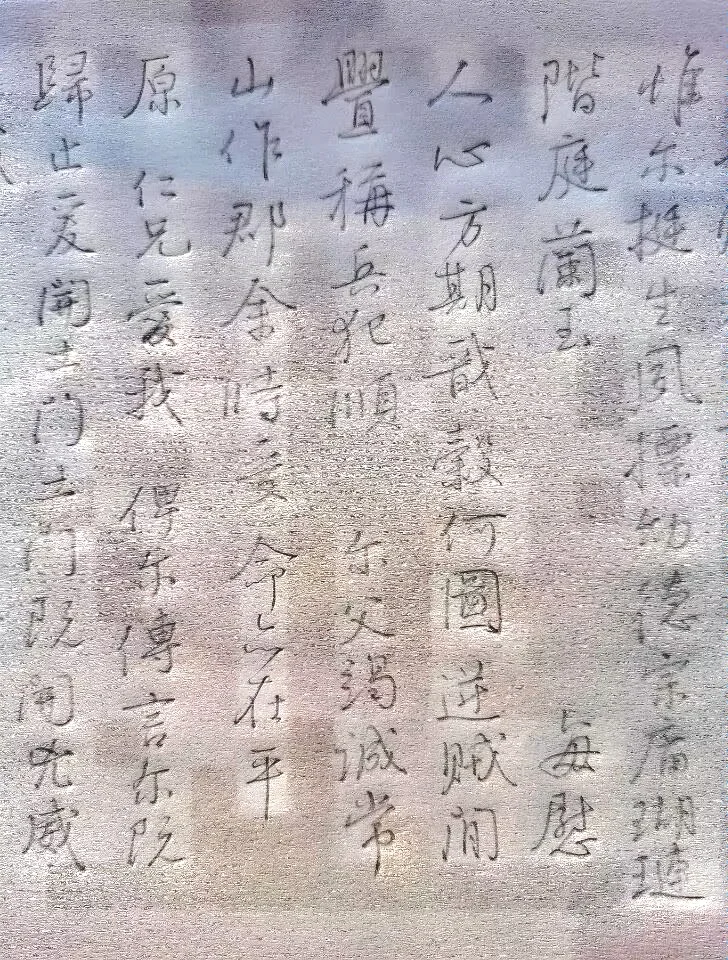 惟尔挺生夙摽幼德宗庿瑚璉
階庭蘭玉每慰
人心方期戩穀何圖逆賊閒
釁稱兵犯順尔父竭誠常
山作郡余時受命亦在平
原仁兄愛我俾尔傳言尔既
歸止爰開土門土門既開凶威